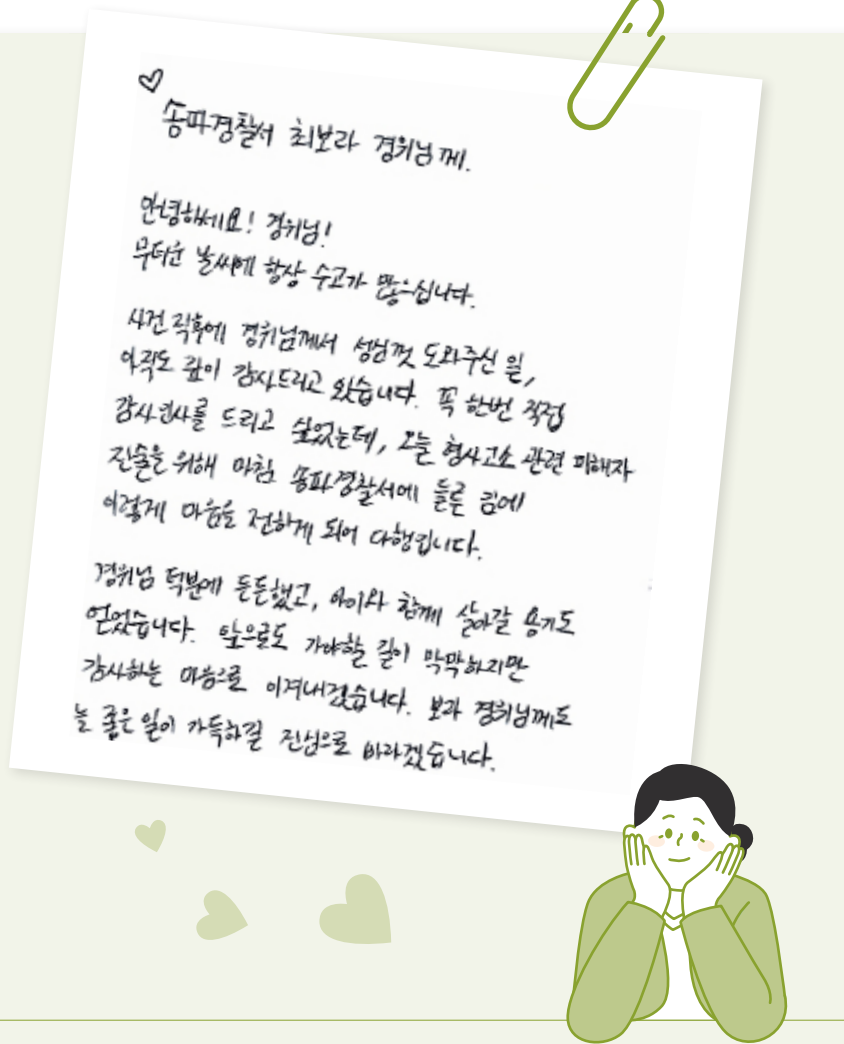 송파경찰서 최보라 경위님께.
안녕하세요! 경위님!
무더운 날씨에 항상 수고가 많으십니다.
사건 직후에 경위님께서 성심껏 도와주신 일,
아직도 깊이 감사드리고 있습니다. 꼭 한번 직접
감사인사를 드리고 싶었는데, 오늘 형사고소 관련 피해자
진술을 위해 마침 송파경찰서에 들른 김에
이렇게 마음을 전하게 되어 다행입니다.
경위님 덕분에 든든했고, 아이와 함께 살아갈 용기도
얻었습니다. 앞으로도 가야할 길이 막막하지만
감사하는 마음으로 이겨내겠습니다. 보라 경위님께도
늘 좋은 일이 가득하길 진심으로 바라겠습니다.